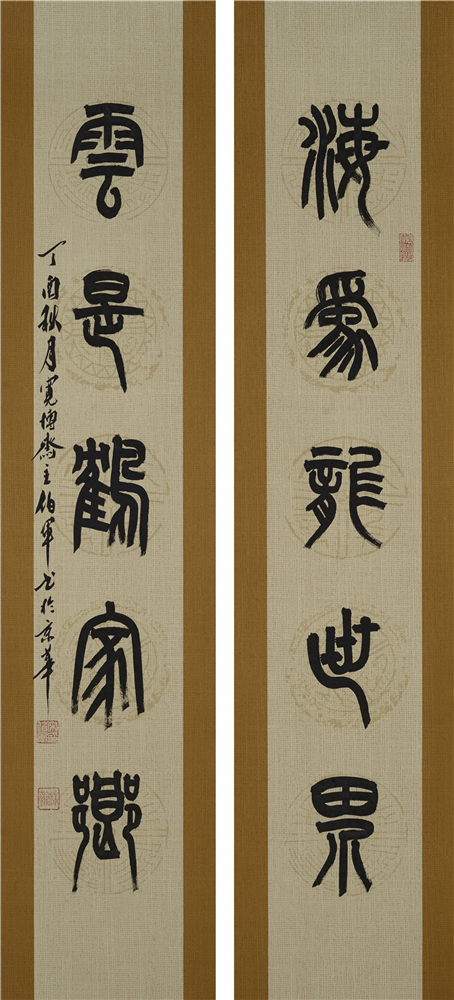 海為龍世界
雲是鶴家鄉
丁酉秋月寬博齋主伯軍书於京華